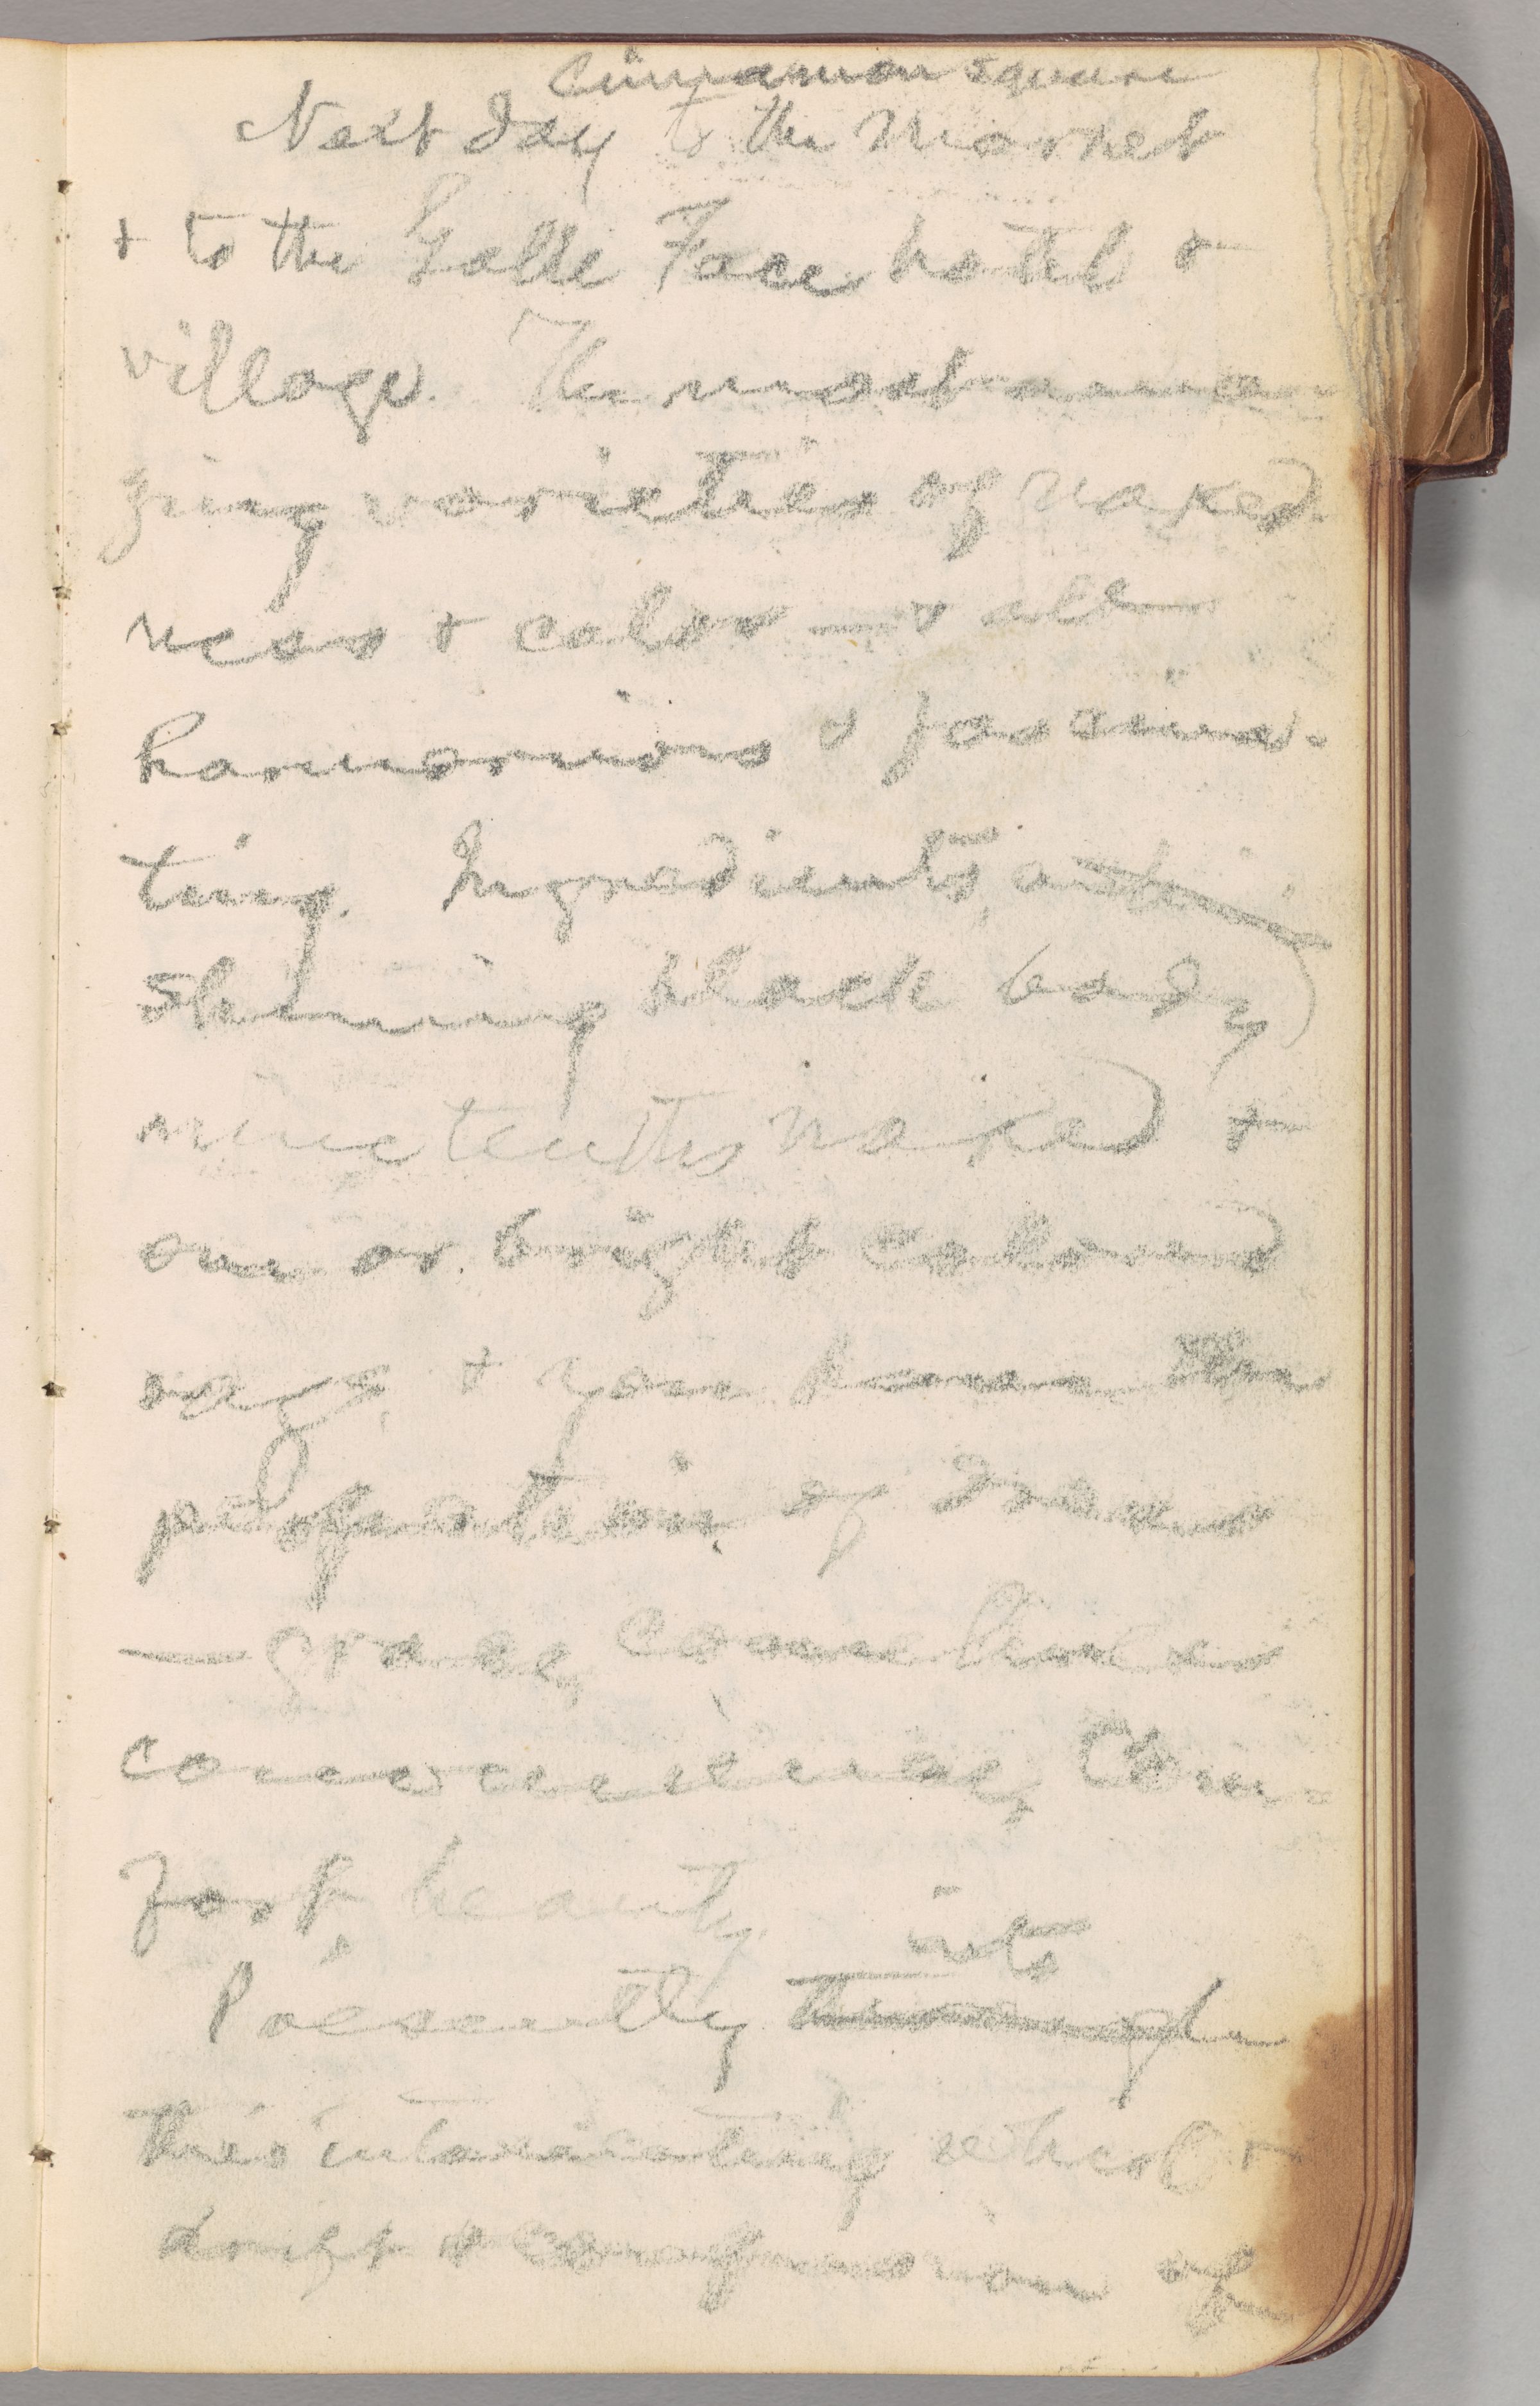 Cinnamon square
Next day to the market
+ to the Galle Face hotel +
village. The most ama-
zing varieties of naked-
ness & color — & all
harmonious & fascina-
ting. Ingredients,
shining black body
nine tenths naked &
one or bright colored
rags, & you have the
perfection of dress
— grace,
convenience, Com-
fort, beauty.
Presently through into
this intoxicating whirl &
drift & confusion of